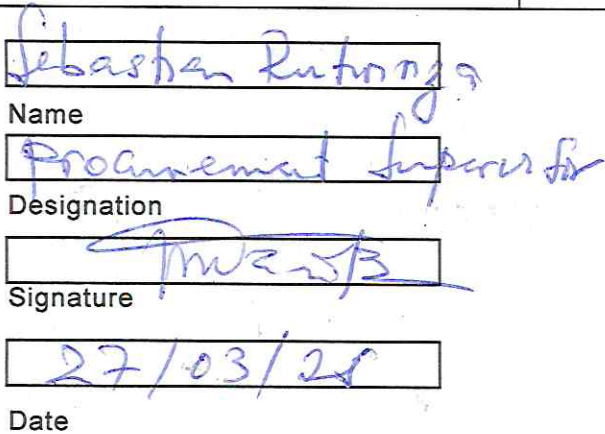 Sebastian
Name
Procurement Supervisor
Designation
Signature
27/03/
Date